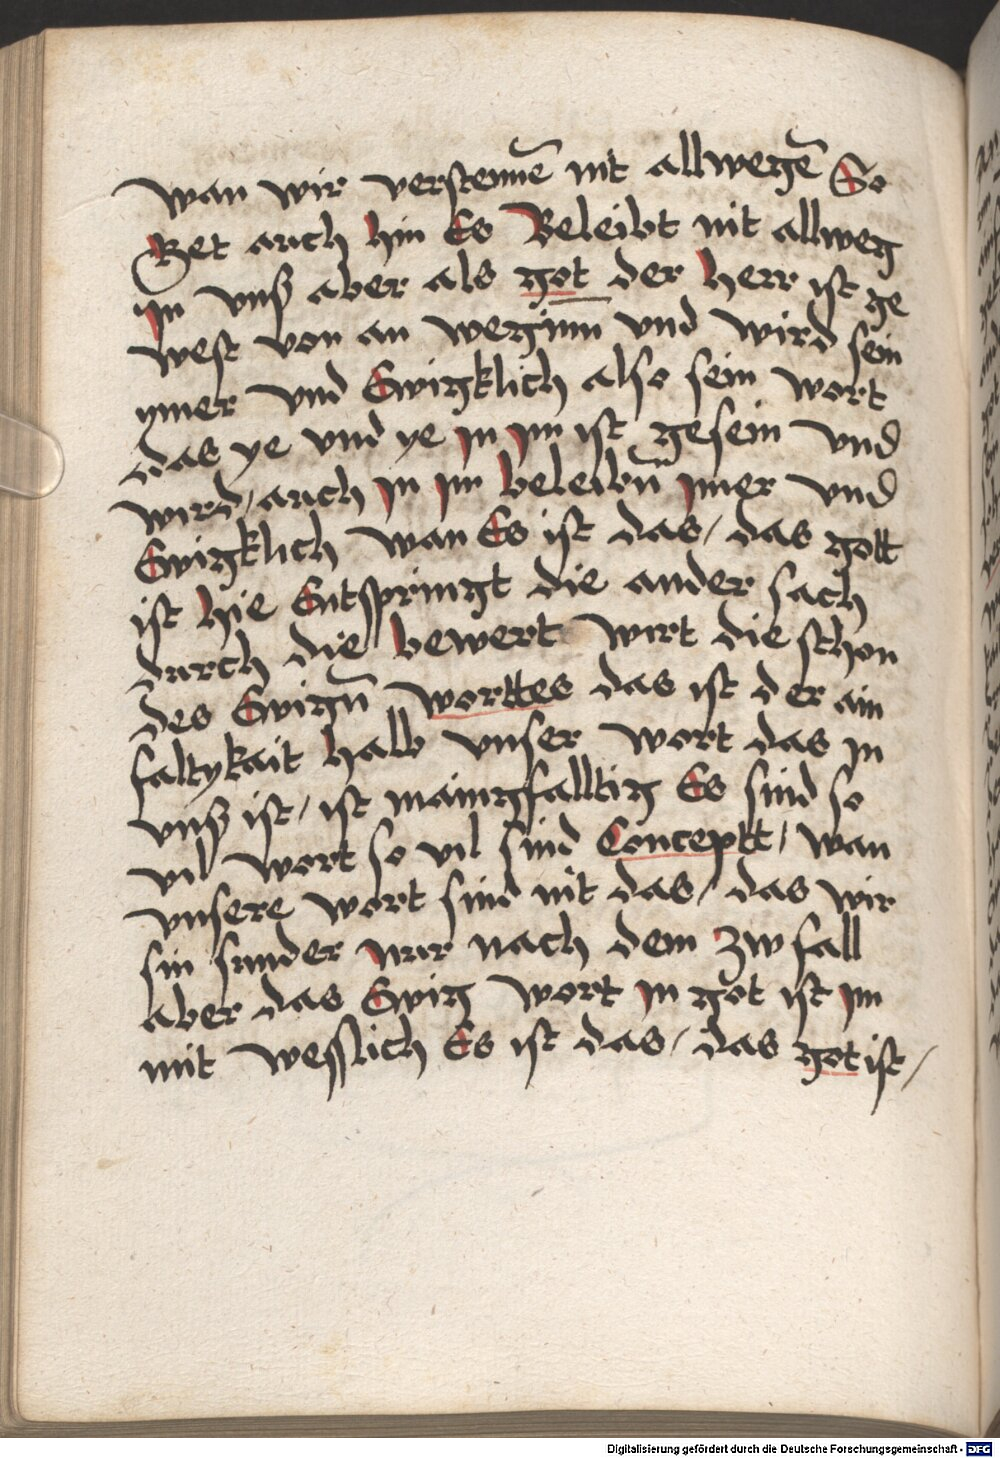 wan wir verstennē nit allwegē So
Get auch hin Es Beleibt nit allweg
Jn vnß aber als got der herr ist ge
west von an weginn vnd wird sein
ymer vnd Ewigklich also sein wort
das ye vnd ye jn jm ist gesein vnd
wird / auch jn jm beleibn̄ jmer vnd
Ewigklich wan Es ist das / das gott
ist hie Entspringt die ander sach
durch die bewert wirt die schon
des Ewign̄ worttes das ist der ain
faltykait halb vnser wort das jn
vnß ist / ist maingfalltig Es sind so
vil wort so vil sind Conceptt / wan
vnsere wort sind nit das / das wir
sin sunder nur nach dem zwfall
aber das Ewig wort jn got ist jm
mit wesslich Es ist das / das got ist /
Digitalisierung gefördert durch die Deutsche Forschungsgemeinschaft - DFG